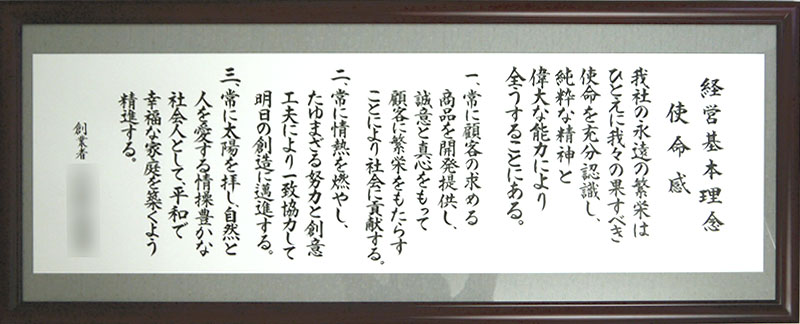 経営基本理念
使命感
我社の永遠の繁栄は
ひとえに我々の果すべき
使命を充分認識し、
純粋な精神と
偉大な能力により
全うすることにある。
一、常に顧客の求める
商品を開発提供し、
誠意と真心をもって
顧客に繁栄をもたらす
ことにより社会に貢献する。
二、常に情熱を燃やし、
たゆまざる努力と創意
工夫により一致協力して
明日の創造に邁進する。
三、常に太陽を拝し、自然と
人を愛する情操豊かな
社会人として、平和で
幸福な家庭を築くよう
精進する。
創業者